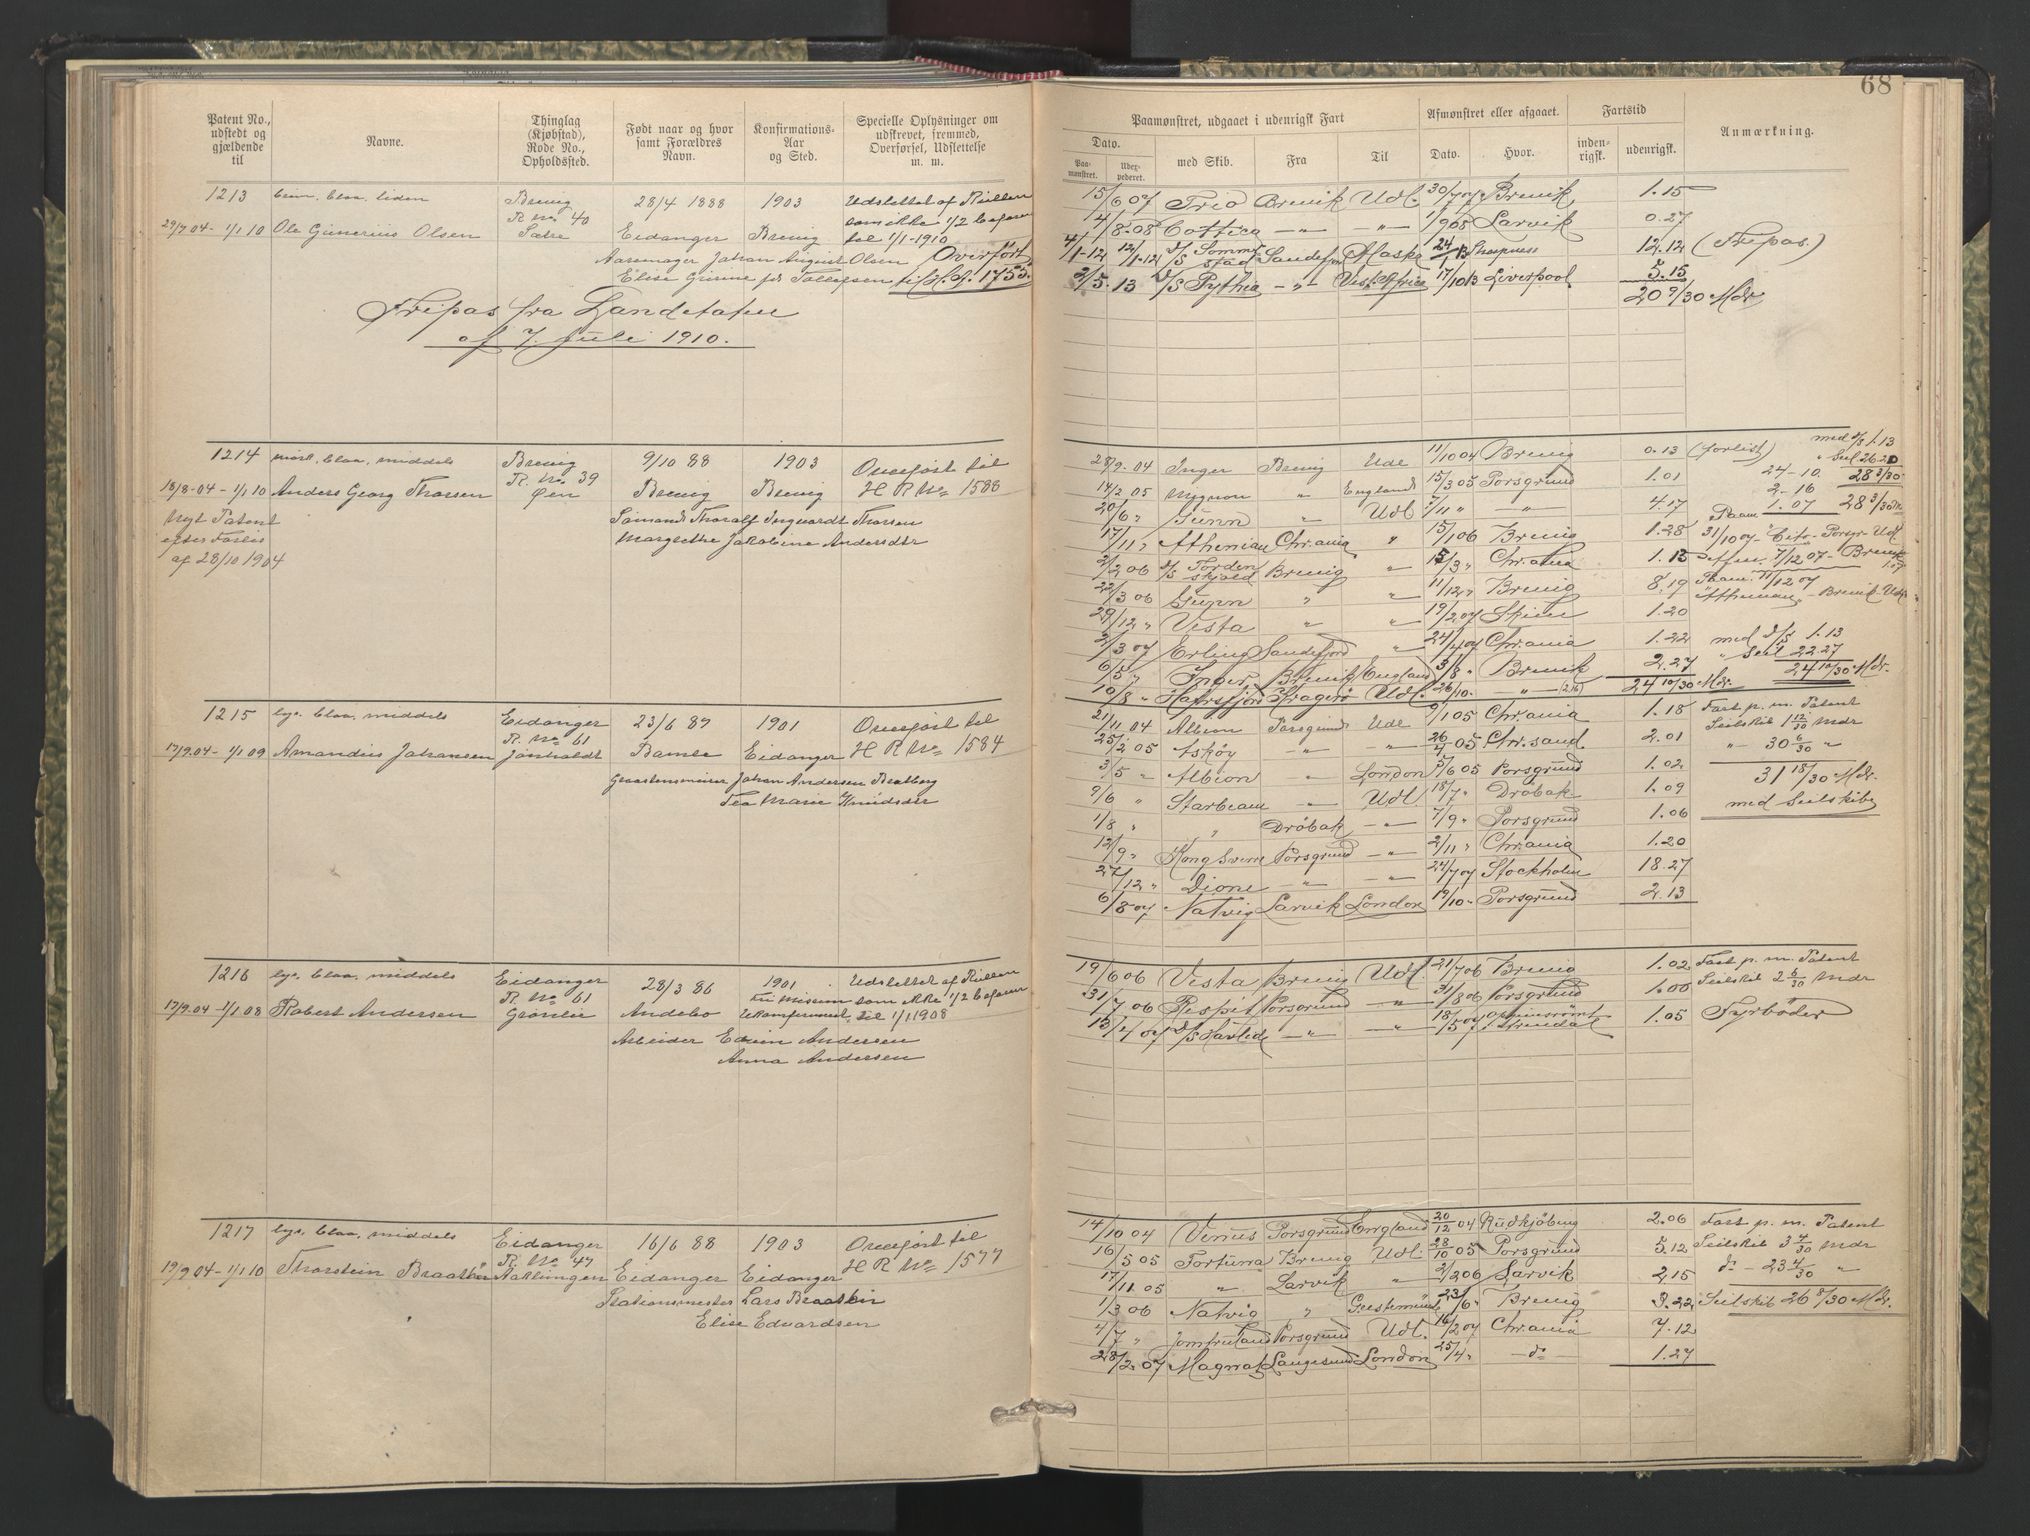 68
Patent No., udstedt og gjældende til
Navne.
Thinglag (Kjøbstad), Rode No., Opholdssted.
Født naar og hvor samt Forældres Navn.
Konfirmations-Aar og Sted.
Specielle Oplysninger om udskrevet, fremmed, Overførsel, Udslettelse m. m.
Paamønstret, udgaaet i udenrigsk Fart
Afmønstret eller afgaaet.
Fartstid
Anmærkning.
Dato.
med Skib.
Fra
Til
Dato.
Hvor.
inden-rigsk.
udenrigsk.
Paa-mønstret.
Udex-pederet.
1213 brun, blaa, liden Brevig 28/4 1888 1903 Udslettet af Rullen
R. No. 40 som ikke 1/2 befaren
29/7 04 - 1/1 10 Ole Gunerius Olsen Sætre Eidanger Brevig til 1/1-1910
Johan August Olsen Overført
til H.R. 1755
Fripas fra Landetaten
af 7. Juli 1910.
15/6 07 Trio Brevik Udl. 30/7 07 Brevik 1.15
4/8.08 Cottica — " — — " — 1/9 08 Larvik 0.27
4/1-12 12/1-12 Sandefj. Alaska 12.12 (Fripas.)
2/5.13 D/S Pythia — " — Vest Africa 17/10 13 Liverpool 5.15
20 9/30 Mdr
1214 mørk, blaa, middels Brevig 9/10 88 1903 Overført til
R. No 39
18/8-04 - 1/1 10 Anders Georg Thorsen Øen Brevig Brevig H R No 1588
Nyt Patent Sømand Thoralf Ingvardt Thorsen
efter Forlis Margrethe Jakobine Andersdtr
af 28/10 1904
28/9.04 Inger Brevig Udl 11/10 04 Brevig 0.13 (forlist) med D/S 1.13
" Seil 26.20
14/2 05 Mygnon " England 15/3 05 Porsgrund 1.01 24-10. 28 3/30
2-16
20/6 " Gunn " Udl 7/11 " — " — 4.17 Paam 1.07 28 3/30
17/11 " Athenian Chr.ania " 15/1 06 Brevig 1.28 31/10 07 - Cito - Porsgr - Udl
2/2 06 D/S Tordenskjold Brevig " 15/3 " Chr.ania 1.13 Afm. 7/12 07 - Brevik 1.07
22/3 06 Gunn " " 11/12 " Brevig 8.19 Paam. 11/12 07
"Athenian" - Brevik - Udl
29/12 " Vesta " " 19/2 07 Skien 1.20
2/3 07 Erling Sandefjord " 24/4 07 Chr.ania 1.22 med D/S 1.13
" Seil 22.27
6/5 " Inger Brevik England 3/8 " Brevik 2.27 24 10/30 Mdr.
10/8 " Hafrsfjord Kragerø Udl 26/10 " — " — (2.16) 24 10/30 Mdr
1215 lys, blaa, middels Eidanger 23/6 87 1901 Overført til
R. No 61
17/9.04 - 1/1 09 Amandius Johansen Jønholdt Bamle Eidanger H R No 1584
Johan Andersen Bratberg
Tea Marie Knudsdtr
21/11 04 Albion Porsgrund Udl 9/1 05 Chr.ania 1.18 Fart p. m. Patent
Seilskib 1 12/30 Mdr
25/2 05 Askøy — " — — " — 26/4 05 Chr.sand 2.01 — " — 30 6/30 "
3/5 " Albion " London 5/6 05 Porsgrund 1.02 31 18/30 Mdr.
9/6 " Starbeam — " — Udl 18/7 " Drøbak 1.09 med Seilskibe
1/8 " " Drøbak — " — 7/9 " Porsgrund 1.06
12/9 " Kong Sverre Porsgrund — " — 2/11 " Chr.ania 1.20
27/12 " Dione — " — — " — 24/7 07 Stockholm 18.27
6/8 07 Natvig Larvik London 19/10 " Porsgrund 2.13
1216 lys, blaa, middels Eidanger 28/3 86 1901 Udslettet af Rullen
R. No 61 som ikke 1/2 befaren
17/9.04 - 1/1 08 Robert Andersen Grønlie Andebo Ukonfirmeret til 1/1 1908
Arbeider Edvin Andersen
Anna Andersen
19/6 06 Vesta Brevig Udl 21/7 06 Brevig 1.02 Fart p. m. Patent
Seilskib 2 6/30 Mdr
31/7 06 Respit Porsgrund — " — 31/8 06 Porsgrund 1.00
13/4 07 — " — — " — 18/5 07 1.05 Fyrbøder
1217 lys, blaa, middels Eidanger 16/6 88 1903 Overført til
R. No 47
19/9 04 - 1/1 10 Thorstein Braaten Naklungen Eidanger Eidanger H R No 1577
Stationsmester Lars Braaten
Elise Edvardsen
14/10 04 Venus Porsgrund England 20/12 04 Rudkjøbing 2.06 Fart p. m. Patent
16/5 05 Fortuna Brevig Udl. 28/10 05 Porsgrund 5.12 Seilskib 3 4/30 Mdr
17/11 05 " Larvik " 2/2 06 Larvik 2.15 do - 23 4/30 "
1/3 06 Natvig " Geestemünde 23/6 " Brevig 3.22 Seilskib 26 8/30 Mdr.
4/7 " Jomfruland Porsgrund Udl. 16/2 07 Chr.ania 7.12
28/2.07 Magnat Langesund London 25/4 " — do — 1.27